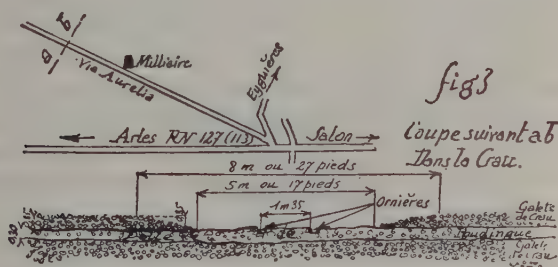 a b
Milliaire
Via Aurelia
Eyguières
fig 3
Arles RN 127 (113) Salon
Coupe suivant ab
Dans la Crau.
8 m ou 27 pieds
5 m ou 17 pieds
1m35
Ornières
Galets
de Crau
Poudingue
Galets
de Crau